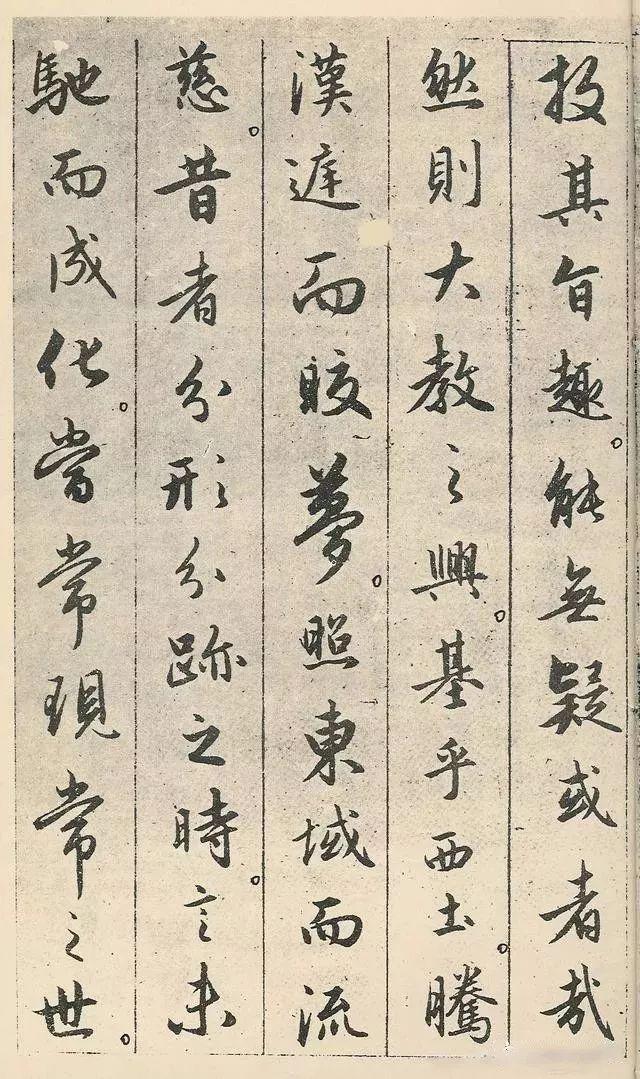 投其旨趣。能無疑或者哉
然則大教之興。基乎西土。騰
漢逹而晈夢。照東域而流
慈。昔者分形分跡之時。言未
馳而成化。當常現常之世。